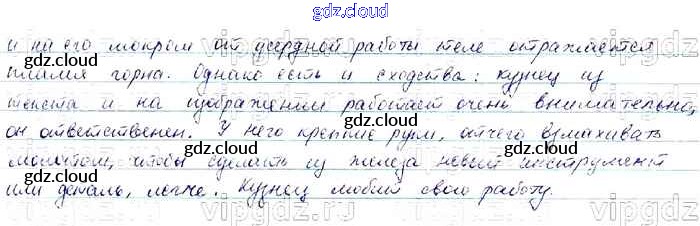 gdz.cloud
и на его мокром от усердной работы теле отражается
пламя горна. Однако есть и сходства: кузнец из
текста и на изображении работает очень внимательно,
он ответственен. У него крепкие руки, отчего взмахивать
молотом, чтобы сделать из железа новый инструмент
или деталь, легче. Кузнец любит свою работу.
gdz.cloud
vipgdz.ru